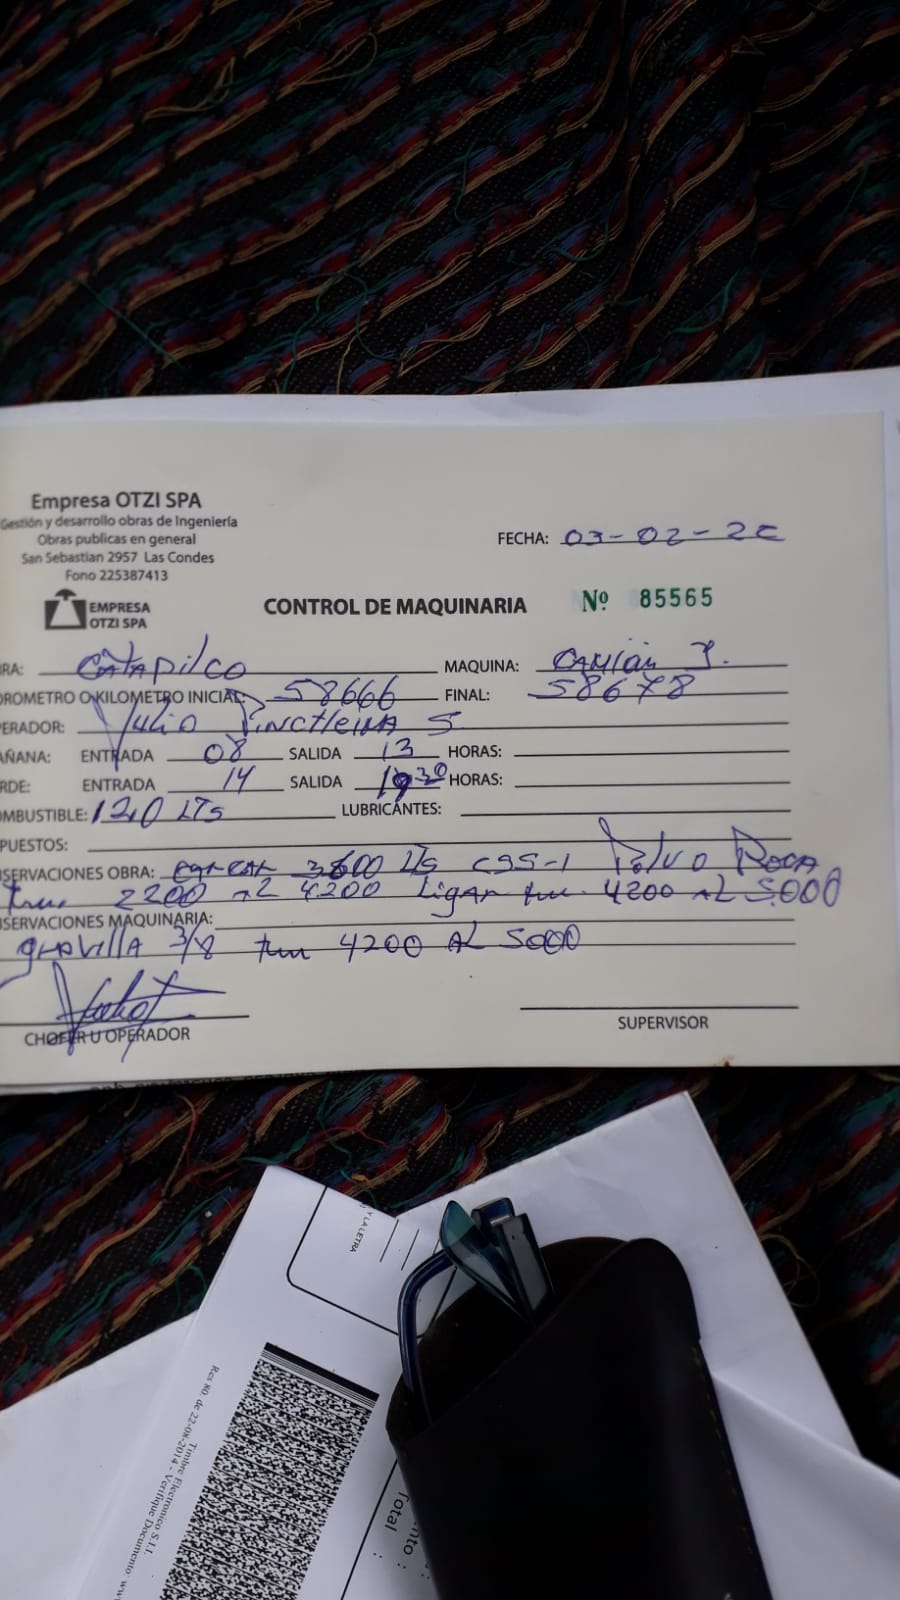 Empresa OTZI SPA
Gestión y desarrollo obras de Ingeniería
Obras publicas en general
San Sebastian 2957 Las Condes
Fono 225387413
EMPRESA
OTZI SPA
FECHA: 03-02-2
CONTROL DE MAQUINARIA Nº 85565
RA: CATAPilco MAQUINA: CAMIón
OROMETRO O KILOMETRO INICIAL: 58666 FINAL: 58678
ERADOR: Julio S
AÑANA: ENTRADA 08 SALIDA 13 HORAS:
RDE: ENTRADA 14 SALIDA 1930 HORAS:
OMBUSTIBLE: 120 LTs LUBRICANTES:
PUESTOS:
SERVACIONES OBRA: 3600 LTs CSS-1 Polvo ROCA
2200 AL 4200 Ligar tm. 4200 AL 5000
SERVACIONES MAQUINARIA:
gravilla 3/8 tm 4200 AL 5000
CHOFER U OPERADOR
SUPERVISOR
Y LA LETRA
Res 80, de 22-08-2014 - Verifique Documento: www
Timbre Electronico S.I.I.
nto :
Total :